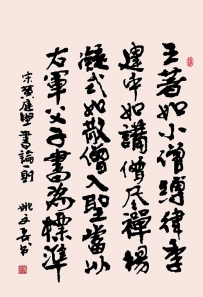 王著如小僧縛律李
建中如講僧尽禪楊
凝式如散僧入聖當以
右軍父子書為標準
宋黄庭堅書論一則